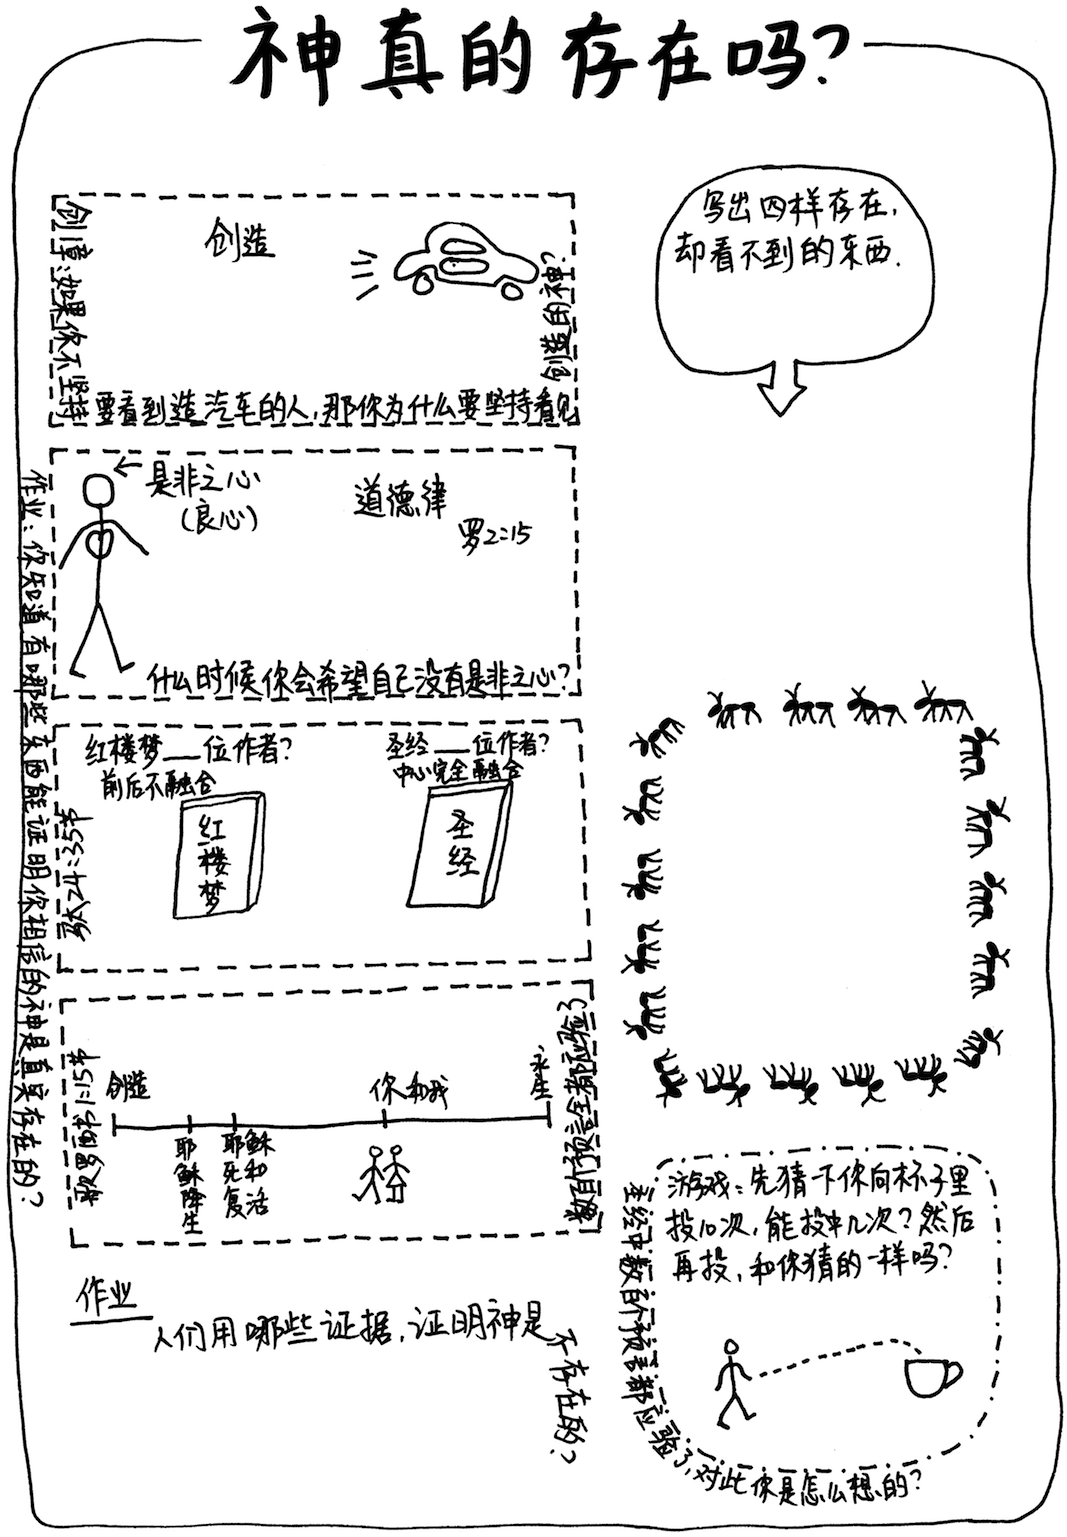 神真的存在吗?
写出四样存在,
却看不到的东西.
创造
创1章:如果你不坚持
要看到造汽车的人,那你为什么要坚持看见
创造的神?
是非之心
(良心)
道德律
罗2:15
什么时候你会希望自己没有是非之心?
作业:你知道有哪些东西能证明你相信的神是真实存在的?
红楼梦__位作者?
前后不融合
圣经__位作者?
中心完全融合
红楼梦
圣经
太24:35节
歌罗西书1:15节
创造
你和我
永生
耶稣降生
耶稣死和复活
数百个预言全都应验了
游戏:先猜一下你向杯子里
投10次,能投中几次?然后
再投,和你猜的一样吗?
圣经中数百个预言都应验了,对此你是怎么想的?
作业
人们用哪些证据,证明神是
不存在的?